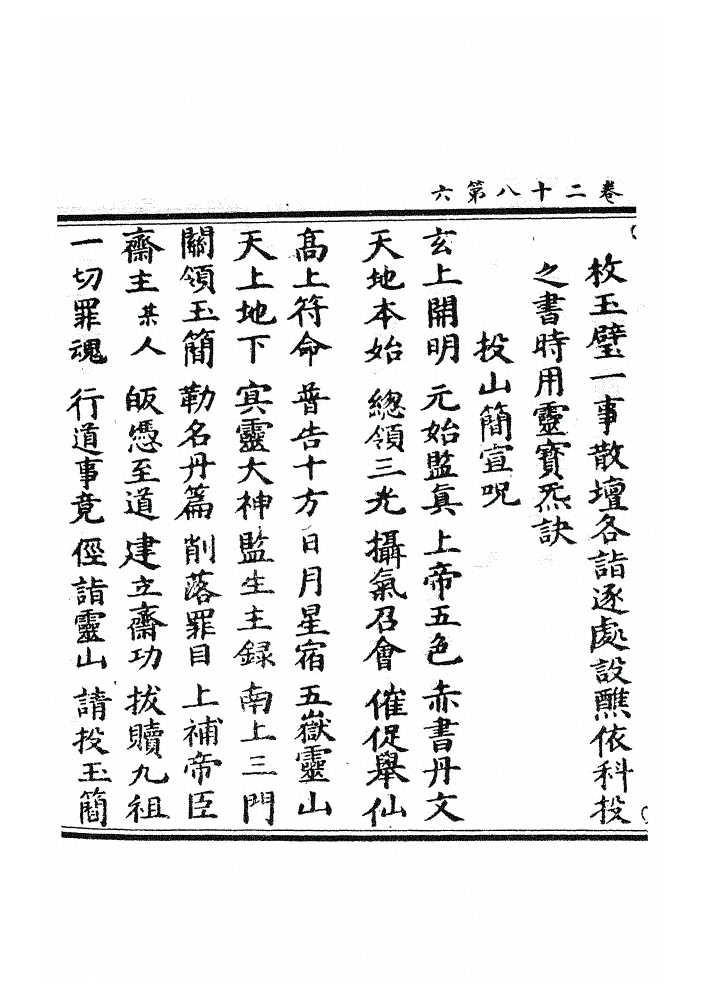 卷二十八第六
枚玉璧一事散壇各詣逐處設醮依科投
之書時用靈寳炁訣
投山簡宣呪
玄上開明 元始監真 上帝五色 赤書丹文
天地本始 緫領三光 攝氣召會 催促舉仙
髙上符命 普告十方 日月星宿 五嶽靈山
天上地下 㝠靈大神 監生主録 南上三門
關領玉簡 勒名丹篇 削落罪目 上補帝臣
齋主某人 皈憑至道 建立齋功 拔贖九祖
一切罪魂 行道事竟 徑詣靈山 請投玉簡